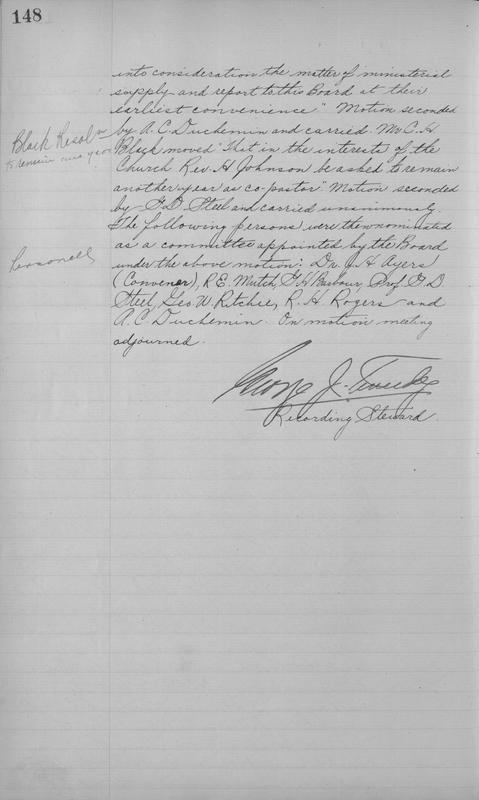 148
into consideration the matter of ministerial
supply and report to this Board at their
earliest convenience" Motion seconded
by A. C. Duchemin and carried. Mr C. H
Black moved "that in the interests of the
Church Rev. H Johnson be asked to remain
another year as co-pastor" Motion seconded
by F. D. Steel and carried unanimously.
The following persons were then nominated
as a committee appointed by the Board
under the above motion: Dr. J. H Ayers
(Convener), R E. Mutch, G H Barbour, Prof. F. D
Steel, Geo W. Ritchie, R. H. Rogers and
A. C. Duchemin. On motion meeting
adjourned.
George J.
Recording Steward.
Black Resoln
to remain one year
Personell